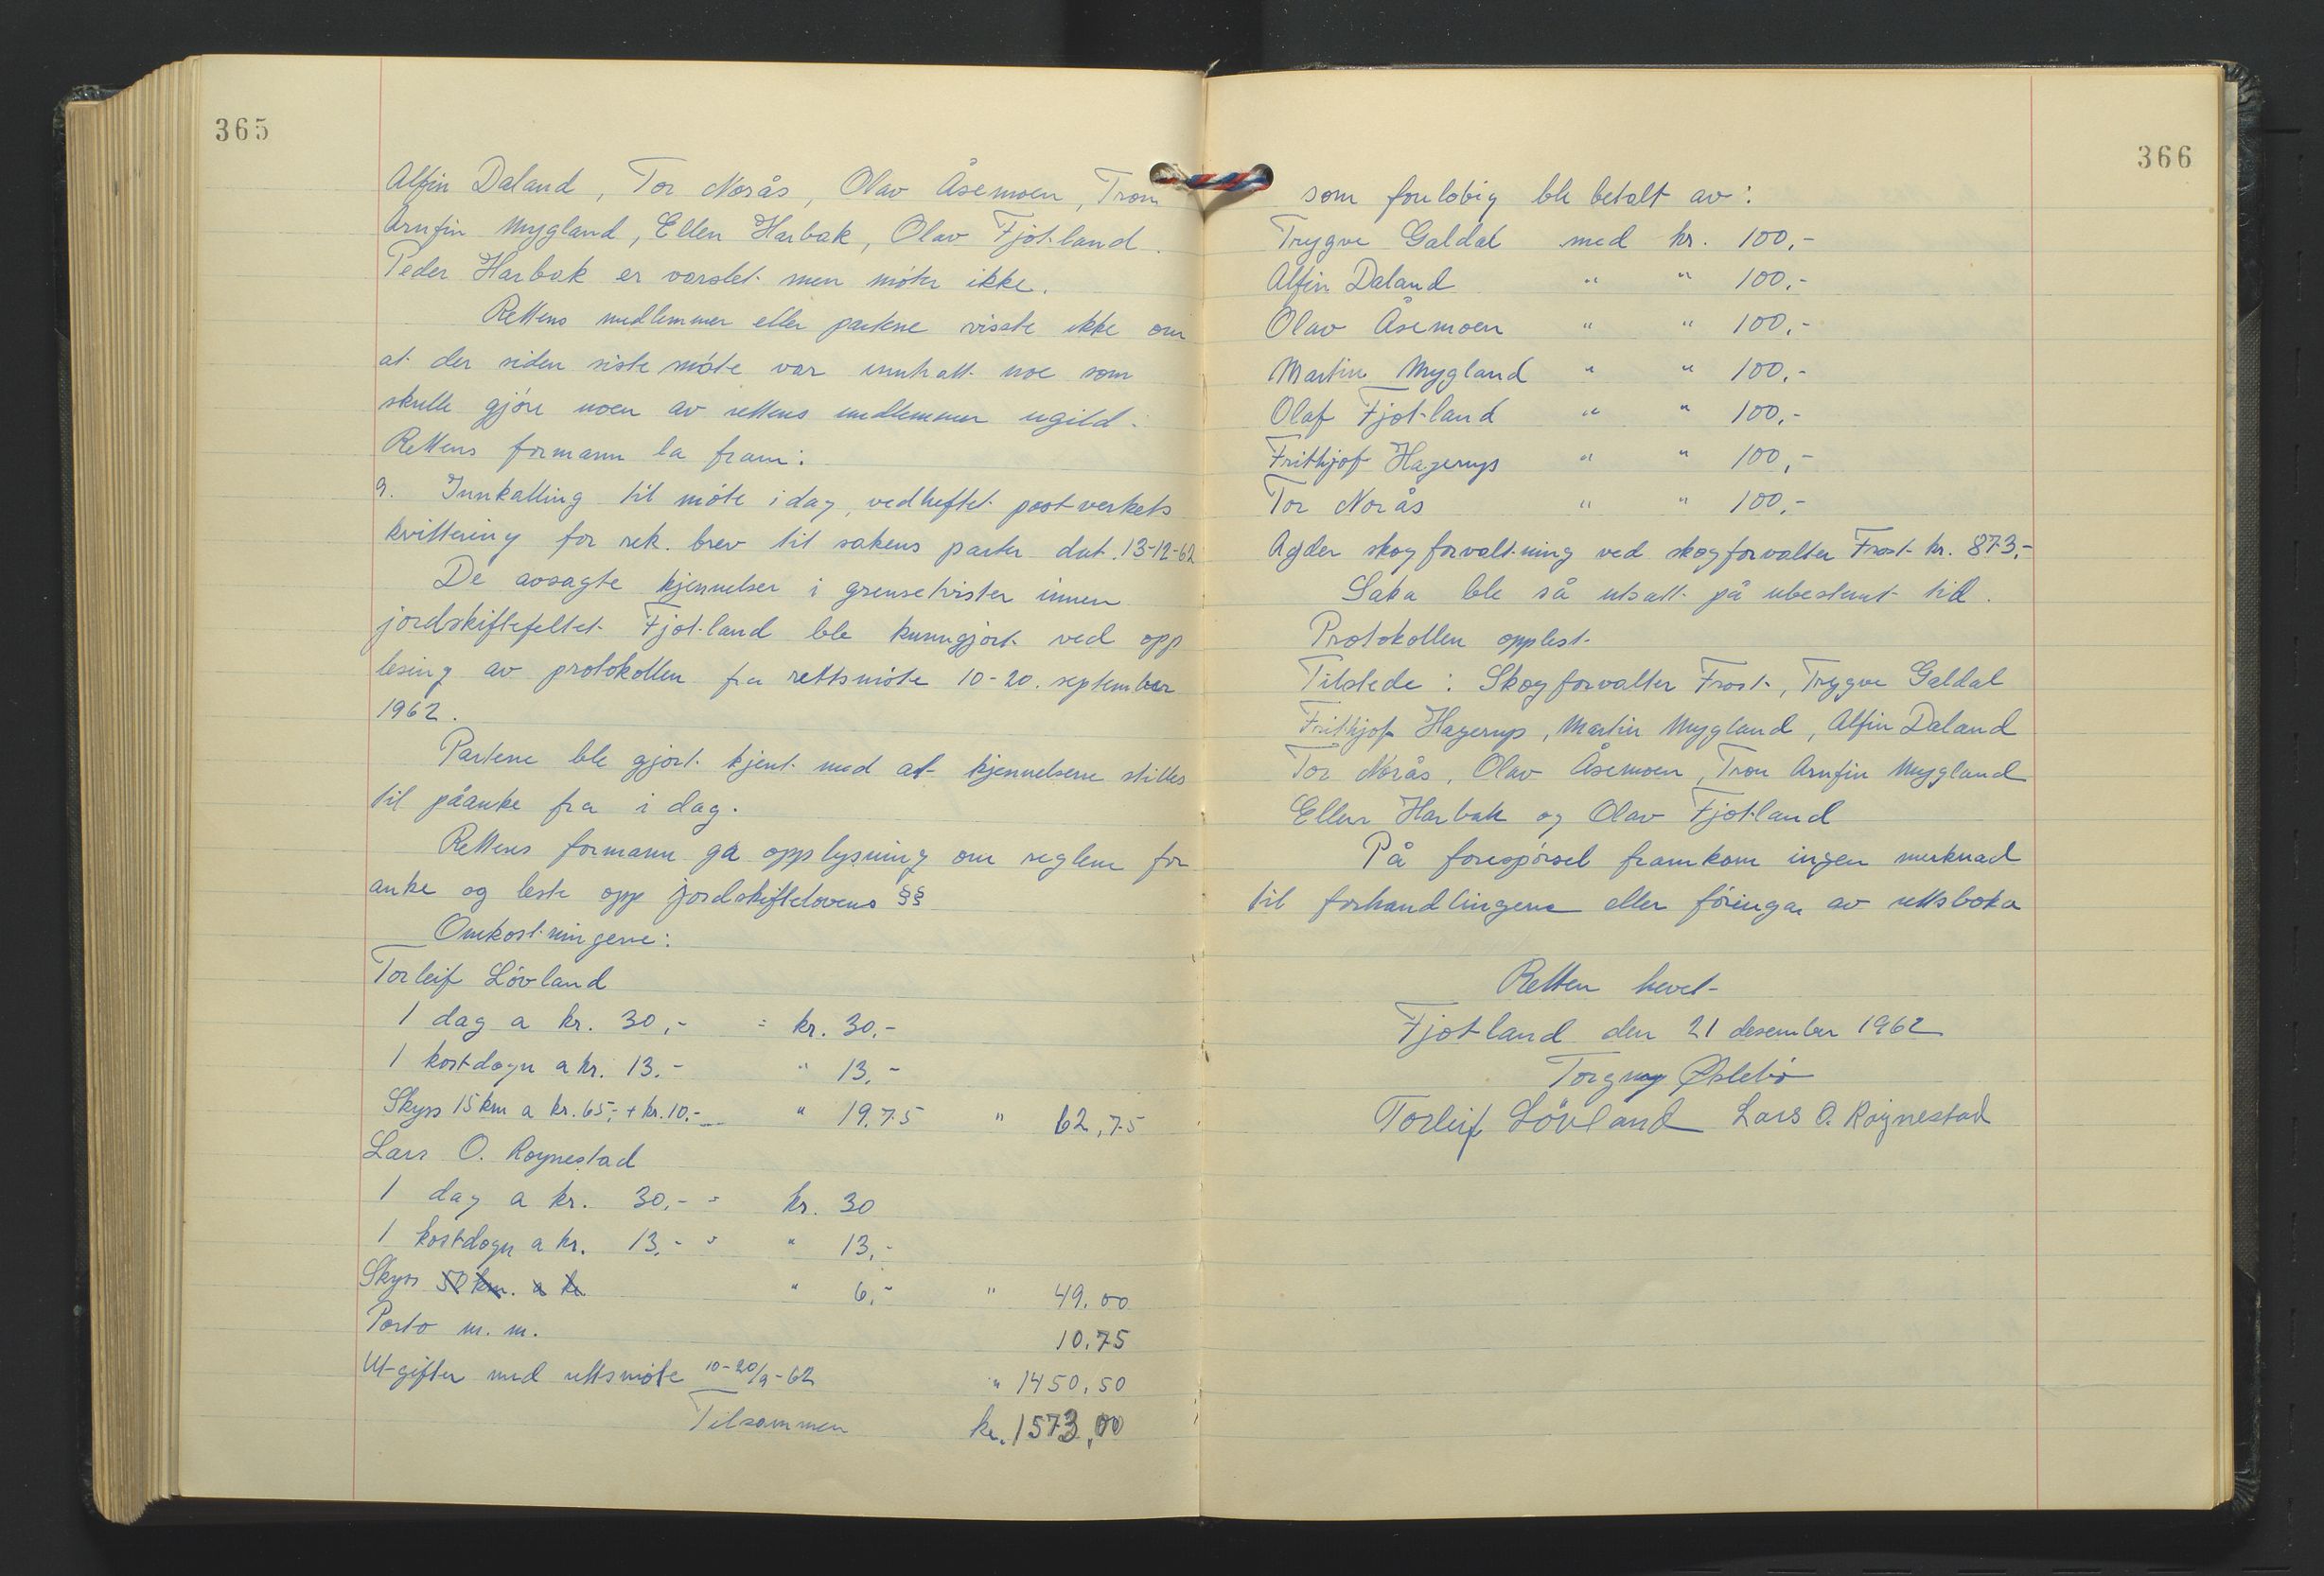 365
Alfin Daland, Tor Norås, Olav Åsemoen, Tron
Arnfin Mygland, Ellen Harbak, Olav Fjotland.
Peder Harbak er varslet men møter ikke.
Rettens medlemmer eller partene visste ikke om
at der siden siste møte var inntratt noe som
skulle gjøre noen av rettens medlemmer ugild.
Rettens formann la fram:
9. Innkalling til møte i dag, vedheftet postverkets
kvittering for rek. brev til sakens parter dat. 13-12-62
De avsagte kjennelser i grensetvister innen
jordskiftefeltet Fjotland ble kunngjort ved opp
lesing av protokollen fra rettsmøte 10-20. september
1962.
Partene ble gjort kjent med at kjennelsene stilles
til påanke fra i dag.
Rettens formann ga opplysning om reglene for
anke og leste opp jordskiftelovens §§
Omkostningene:
Torleif Lövland
1 dag a kr. 30,- = kr. 30,-
1 kostdøgn a kr. 13.- " 13,-
Skyss 15 km a kr. 65,- + kr. 10.- " 19.75 " 62,75
Lars O. Røynestad
1 dag a kr. 30,- = kr. 30
1 kostdøgn a kr. 13,- = " 13,-
Skyss 50 km. a kr " 6,- " 49.00
Porto m. m. 10.75
Utgifter med rettsmøte 10-20/9-62 " 1450,50
Tilsammen kr. 1573,00
366
som foreløbig ble betalt av:
Trygve Galdal med kr. 100,-
Alfin Daland " " 100,-
Olav Åsemoen " " 100,-
Martin Mygland " " 100,-
Olaf Fjotland " " 100,-
Frithjof Hagerup " " 100,-
Tor Norås " " 100,-
Agder skogforvaltning ved skogforvalter Frost kr. 873,-
Saka ble så utsatt på ubestemt tid.
Protokollen opplest.
Tilstede: Skogforvalter Frost, Trygve Galdal
Frithjof Hagerup, Martin Mygland, Alfin Daland
Tor Norås, Olav Åsemoen, Tron Arnfin Mygland
Ellen Harbak og Olav Fjotland
På forespørsel framkom ingen merknad
til forhandlingene eller føringa av rettsboka
Retten hevet
Fjotland den 21 desember 1962
Torgny Øslebø
Torleif Lövland Lars O. Røynestad